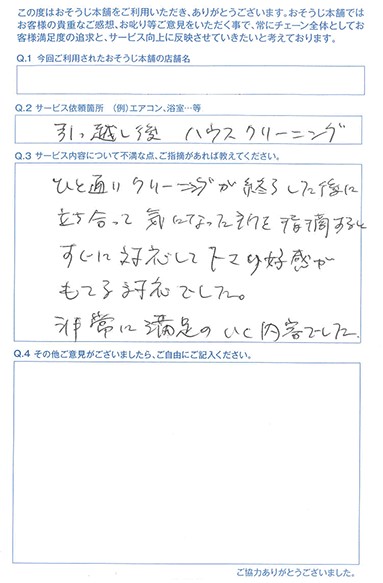 この度はおそうじ本舗をご利用いただき、ありがとうございます。おそうじ本舗では
お客様の貴重なご感想、お叱り等ご意見をいただく事で、常にチェーン全体としてお
客様満足度の追求と、サービス向上に反映させていきたいと考えております。
Q.1 今回ご利用されたおそうじ本舗の店舗名
Q.2 サービス依頼箇所 （例）エアコン、浴室…等
引っ越し後 ハウスクリーニング
Q.3 サービス内容について不満な点、ご指摘があれば教えてください。
ひと通りクリーニングが終了した後に
立ち合って気になった所を指摘すると
すぐに対応して下さり好感が
もてる対応でした。
非常に満足のいく内容でした。
Q.4 その他ご意見がございましたら、ご自由にご記入ください。
ご協力ありがとうございました。